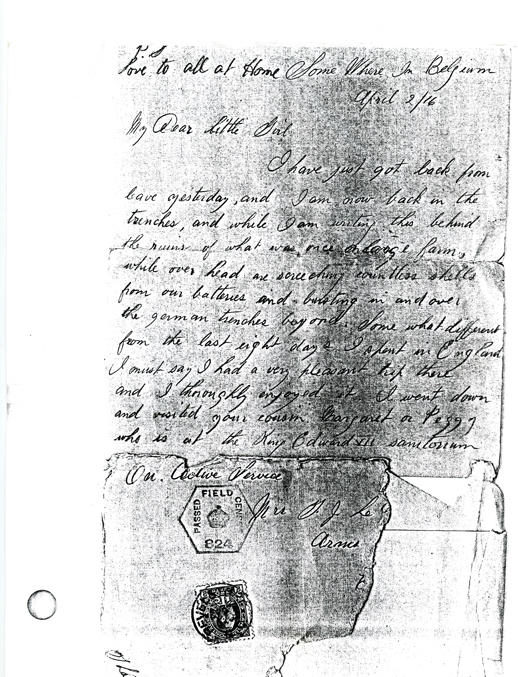 P.S
Love to all at Home Some Where In Belgium
April 2/16
My Dear Little Girl
I have just got back from
leave yesterday, and I am now back in the
trenches, and while I am writing this behind
the ruins of what was once a large farm,
while over head are screeching countless shells
from our batteries and bursting in and over
the german trenches beyond. Some what different
from the last eight days I spent in England
I must say I had a very pleasant trip there
and I thoroughly enjoyed it I went down
and visited your cousin Margaret or Peggy
who is at the King Edward VII sanitorium
On. Active Service
PASSED FIELD CEN
824
Mrs J Le
Arms